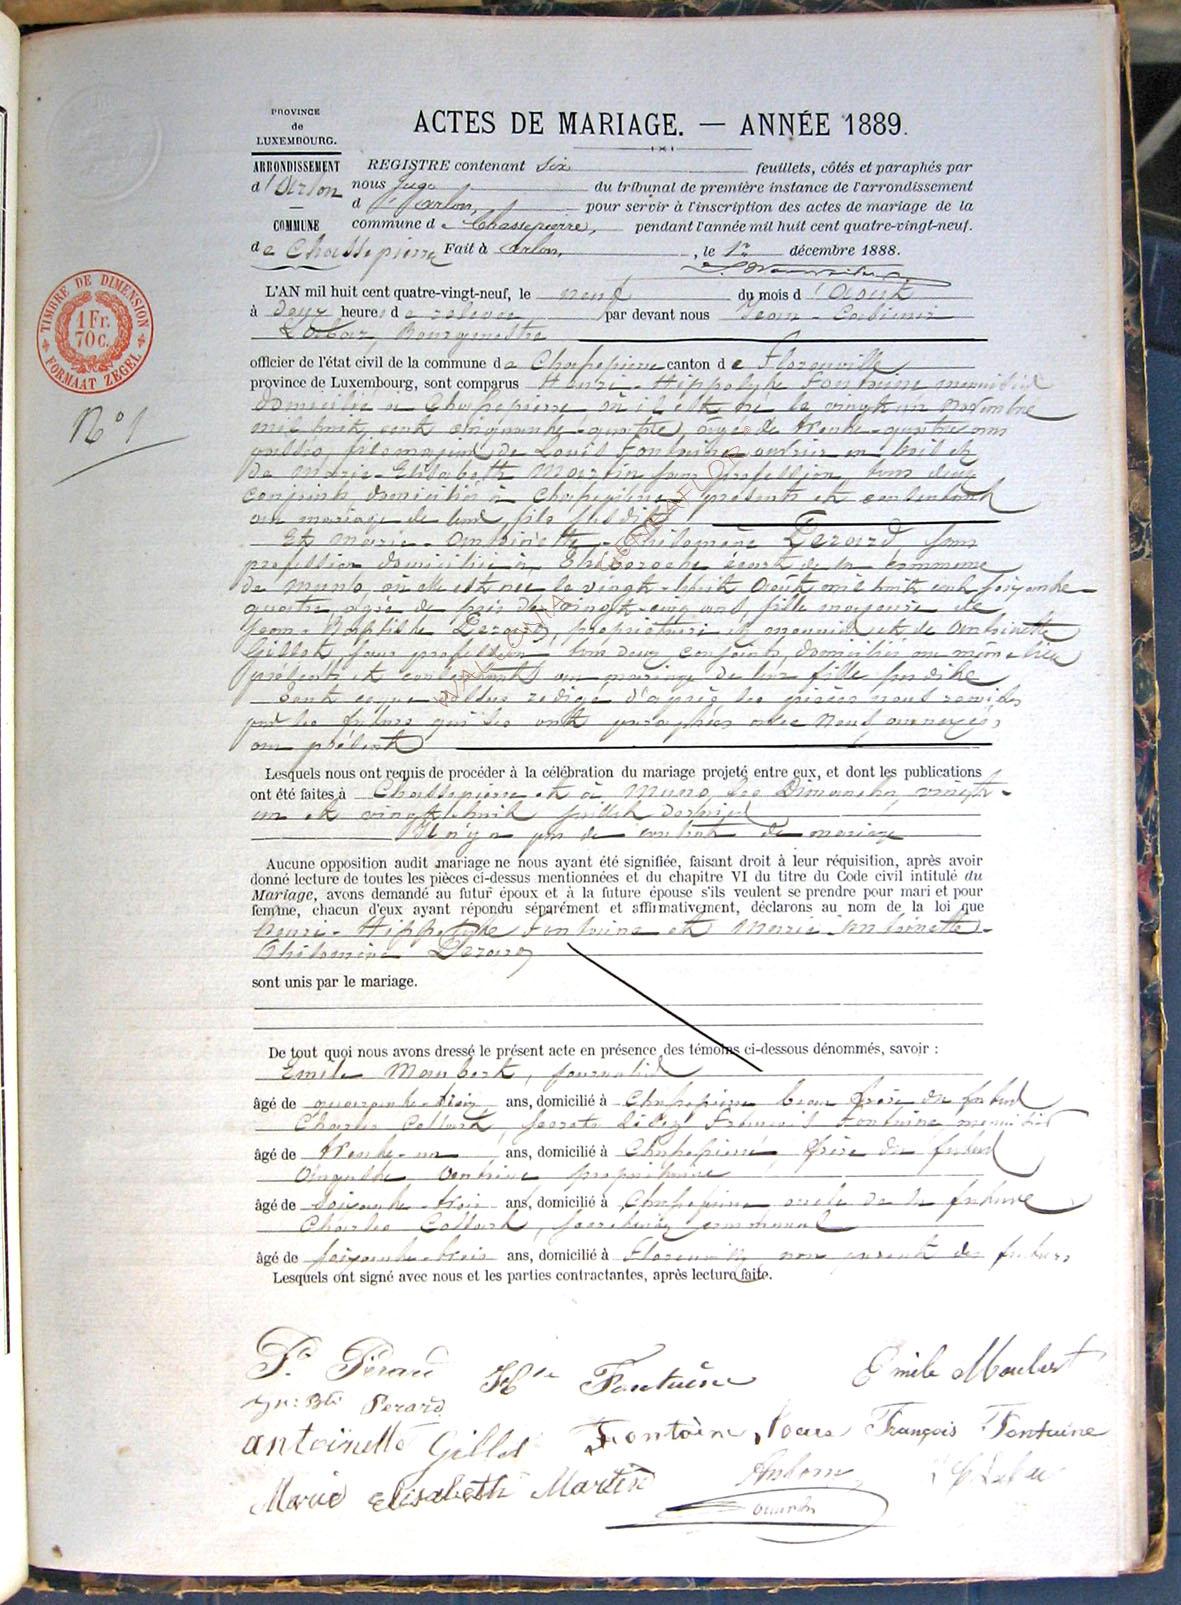 PROVINCE
de
LUXEMBOURG.
ARRONDISSEMENT
d'Arlon
COMMUNE
de Chassepierre
ACTES DE MARIAGE. — ANNÉE 1889.
REGISTRE contenant six feuillets, côtés et paraphés par
nous juge du tribunal de première instance de l'arrondissement
d'Arlon, pour servir à l'inscription des actes de mariage de la
commune de Chassepierre, pendant l'année mil huit cent quatre-vingt-neuf.
Fait à Arlon, le 1er décembre 1888.
TIMBRE DE DIMENSION
1 Fr.
70 c.
FORMAAT ZEGEL
N° 1
L'AN mil huit cent quatre-vingt-neuf, le neuf du mois d'Août
à deux heures de relevée par devant nous Jean-Casimir
Bourgmestre
officier de l'état civil de la commune de Chassepierre canton de Florenville
province de Luxembourg, sont comparus Henri-Hippolyte Fontaine menuisier
domicilié à Chassepierre où il est né le vingt un novembre
mil huit cent cinquante-quatre, âgé de trente-quatre ans
fils majeur de Louis Fontaine ouvrier en bois et
de Marie-Elisabeth Martin sans profession tous deux
conjoints domiciliés à Chassepierre présents et consentant
au mariage de leur fils susdit
Et Marie-Antoinette-Philomène Perard sans
profession domiciliée à écart de la commune
de Muno, où elle est née le vingt-huit Août mil huit cent soixante
quatre, âgée de près de vingt-cinq ans, fille majeure de
Jean-Baptiste Perard, propriétaire et meunier et de Antoinette
Gillet sans profession tous deux conjoints domiciliés au même lieu
présents et consentants au mariage de leur fille susdite
rédigé d'après les pièces nous remises
par les futurs qui les ont paraphées avec nous annexées
au présent
Lesquels nous ont requis de procéder à la célébration du mariage projeté entre eux, et dont les publications
ont été faites à Chassepierre et à Muno les Dimanches vingt-
un et vingt-huit juillet dernier
Il n'y a pas de contrat de mariage
Aucune opposition audit mariage ne nous ayant été signifiée, faisant droit à leur réquisition, après avoir
donné lecture de toutes les pièces ci-dessus mentionnées et du chapitre VI du titre du Code civil intitulé du
Mariage, avons demandé au futur époux et à la future épouse s'ils veulent se prendre pour mari et pour
femme, chacun d'eux ayant répondu séparément et affirmativement, déclarons au nom de la loi que
Henri-Hippolyte Fontaine et Marie-Antoinette-
Philomène Perard
sont unis par le mariage.
De tout quoi nous avons dressé le présent acte en présence des témoins ci-dessous dénommés, savoir :
Emile Maubert, journalier
âgé de quarante ans, domicilié à Chassepierre beau frère du futur
Charles Collart, François Fontaine menuisier
âgé de trente-un ans, domicilié à Chassepierre, frère du futur
propriétaire
âgé de soixante-trois ans, domicilié à Chassepierre oncle de la future
Charles Collart, secrétaire communal
âgé de soixante-trois ans, domicilié à Florenville, non parent des futurs
Lesquels ont signé avec nous et les parties contractantes, après lecture faite.
Ph Pérard Hte Fontaine Emile Maubert
Jn: Bte Perard
antoinette Gillet Fontaine Louis François Fontaine
Marie Elisabeth Martin
WALLONIA GENEAFLOR